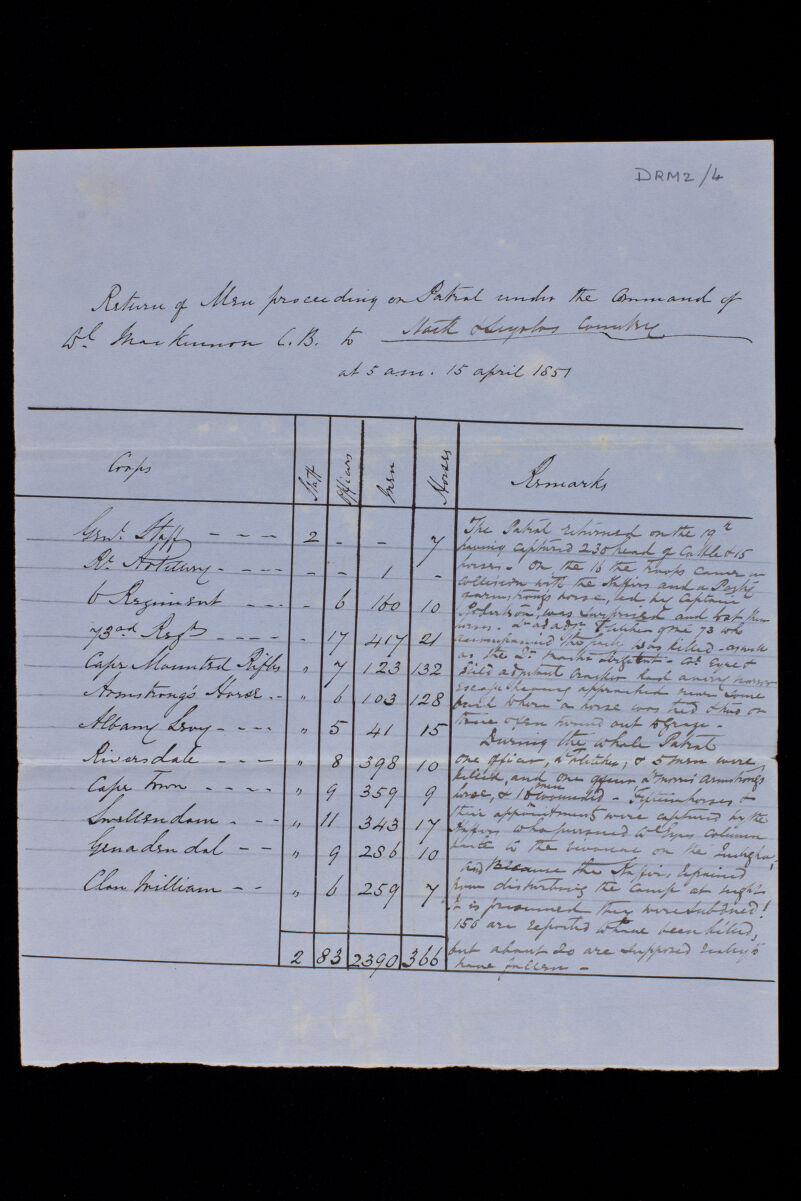 DRM2/4
Return of Men proceeding on Patrol under the Command of
Cl. MacKinnon C.B. to Country
at 5 a.m. 15 april 1851
Corps Staff Officers Men Horses Remarks
Genl. Staff - - - 2 - - 7
Rl. Artillery - - - - - 1 -
6 Regiment - - - - 6 160 10
73rd Regt - - - - - 17 417 21
Cape Mounted Rifles " 7 123 132
Armstrong's Horse - - " 6 103 128
Albany Levy - - - " 5 41 15
Riversdale - - - " 8 398 10
Cape Town - - - - " 9 359 9
Swellendam - - - " 11 343 17
Genadendal - - " 9 286 10
Clan William - - " 6 259 7
2 83 2390 366
The Patrol returned on the 19th
having captured 230 head of Cattle & 15
horses - On the 16 the troops came in
collision with the Kaffirs and a Party
Armstrong's horse, led by Captain
Robertson, was surprised and lost their
horses. of the 73 who
accompanied the was killed - as well
as the Col Eyre &
adjutant had a very narrow
escape having approached near some
where a horse was tied
During the whole Patrol
one officer, & 5 men were
killed, and one officer Armstrong's
horse, & men wounded - horses &
their appointments were captured by the
Kaffirs who pursued Col Eyre's column
to the bivouac on the
and Because the Kaffirs refrained
from disturbing the Camp at night
it is presumed they were subdued!
150 are reported to have been killed,
but about 20 are supposed really to
have fallen -